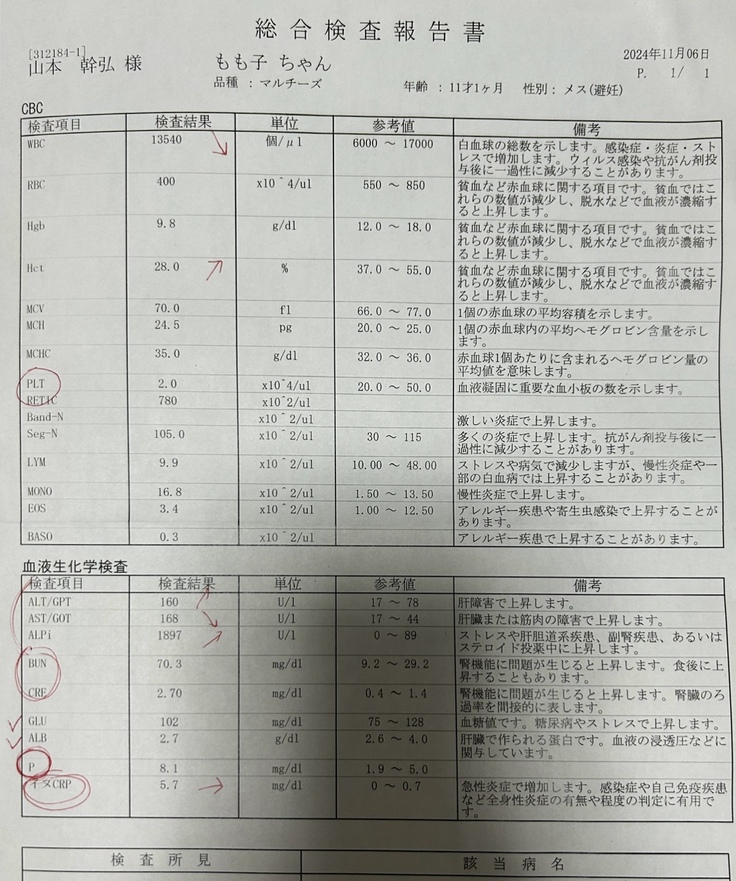 総合検査報告書
[312184-1]
山本 幹弘 様
もも子 ちゃん
2024年11月06日
P. 1/ 1
品種 : マルチーズ
年齢 : 11才1ヶ月 性別: メス(避妊)
CBC
検査項目 検査結果 単位 参考値 備考
WBC 13540 個/μl 6000 ～ 17000 白血球の総数を示します。感染症・炎症・スト
レスで増加します。ウィルス感染や抗がん剤投
与後に一過性に減少することがあります。
RBC 400 x10^4/ul 550 ～ 850 貧血など赤血球に関する項目です。貧血ではこ
れらの数値が減少し、脱水などで血液が濃縮す
ると上昇します。
Hgb 9.8 g/dl 12.0 ～ 18.0 貧血など赤血球に関する項目です。貧血ではこ
れらの数値が減少し、脱水などで血液が濃縮す
ると上昇します。
Hct 28.0 % 37.0 ～ 55.0 貧血など赤血球に関する項目です。貧血ではこ
れらの数値が減少し、脱水などで血液が濃縮す
ると上昇します。
MCV 70.0 fl 66.0 ～ 77.0 1個の赤血球の平均容積を示します。
MCH 24.5 pg 20.0 ～ 25.0 1個の赤血球内の平均ヘモグロビン含量を示し
ます。
MCHC 35.0 g/dl 32.0 ～ 36.0 赤血球1個あたりに含まれるヘモグロビン量の
平均値を意味します。
PLT 2.0 x10^4/ul 20.0 ～ 50.0 血液凝固に重要な血小板の数を示します。
RETIC 780 x10^2/ul
Band-N x10^2/ul 激しい炎症で上昇します。
Seg-N 105.0 x10^2/ul 30 ～ 115 多くの炎症で上昇します。抗がん剤投与後に一
過性に減少することがあります。
LYM 9.9 x10^2/ul 10.00 ～ 48.00 ストレスや病気で減少しますが、慢性炎症や一
部の白血病では上昇することがあります。
MONO 16.8 x10^2/ul 1.50 ～ 13.50 慢性炎症で上昇します。
EOS 3.4 x10^2/ul 1.00 ～ 12.50 アレルギー疾患や寄生虫感染で上昇することが
あります。
BASO 0.3 x10^2/ul アレルギー疾患で上昇することがあります。
血液生化学検査
検査項目 検査結果 単位 参考値 備考
ALT/GPT 160 U/l 17 ～ 78 肝障害で上昇します。
AST/GOT 168 U/l 17 ～ 44 肝臓または筋肉の障害で上昇します。
ALPi 1897 U/l 0 ～ 89 ストレスや肝胆道系疾患、副腎疾患、あるいは
ステロイド投薬中に上昇します。
BUN 70.3 mg/dl 9.2 ～ 29.2 腎機能に問題が生じると上昇します。食後に上
昇することもあります。
CRE 2.70 mg/dl 0.4 ～ 1.4 腎機能に問題が生じると上昇します。腎臓のろ
過率を間接的に表します。
GLU 102 mg/dl 75 ～ 128 血糖値です。糖尿病やストレスで上昇します。
ALB 2.7 g/dl 2.6 ～ 4.0 肝臓で作られる蛋白です。血液の浸透圧などに
関与しています。
P 8.1 mg/dl 1.9 ～ 5.0
イヌCRP 5.7 mg/dl 0 ～ 0.7 急性炎症で増加します。感染症や自己免疫疾患
など全身性炎症の有無や程度の判定に有用で
す。
検査所見 該当病名